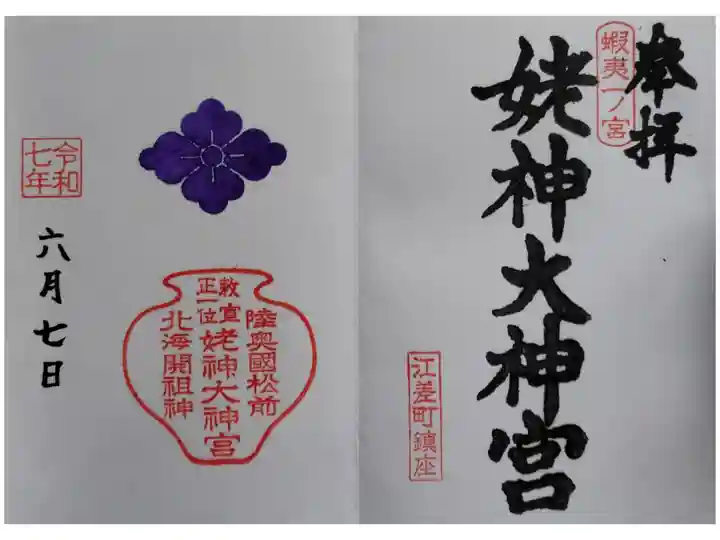 奉拝
蝦夷一ノ宮
姥神大神宮
江差町鎮座
陸奥國松前
勅宣
正一位
姥神大神宮
北海開祖神
令和
七年
六月七日